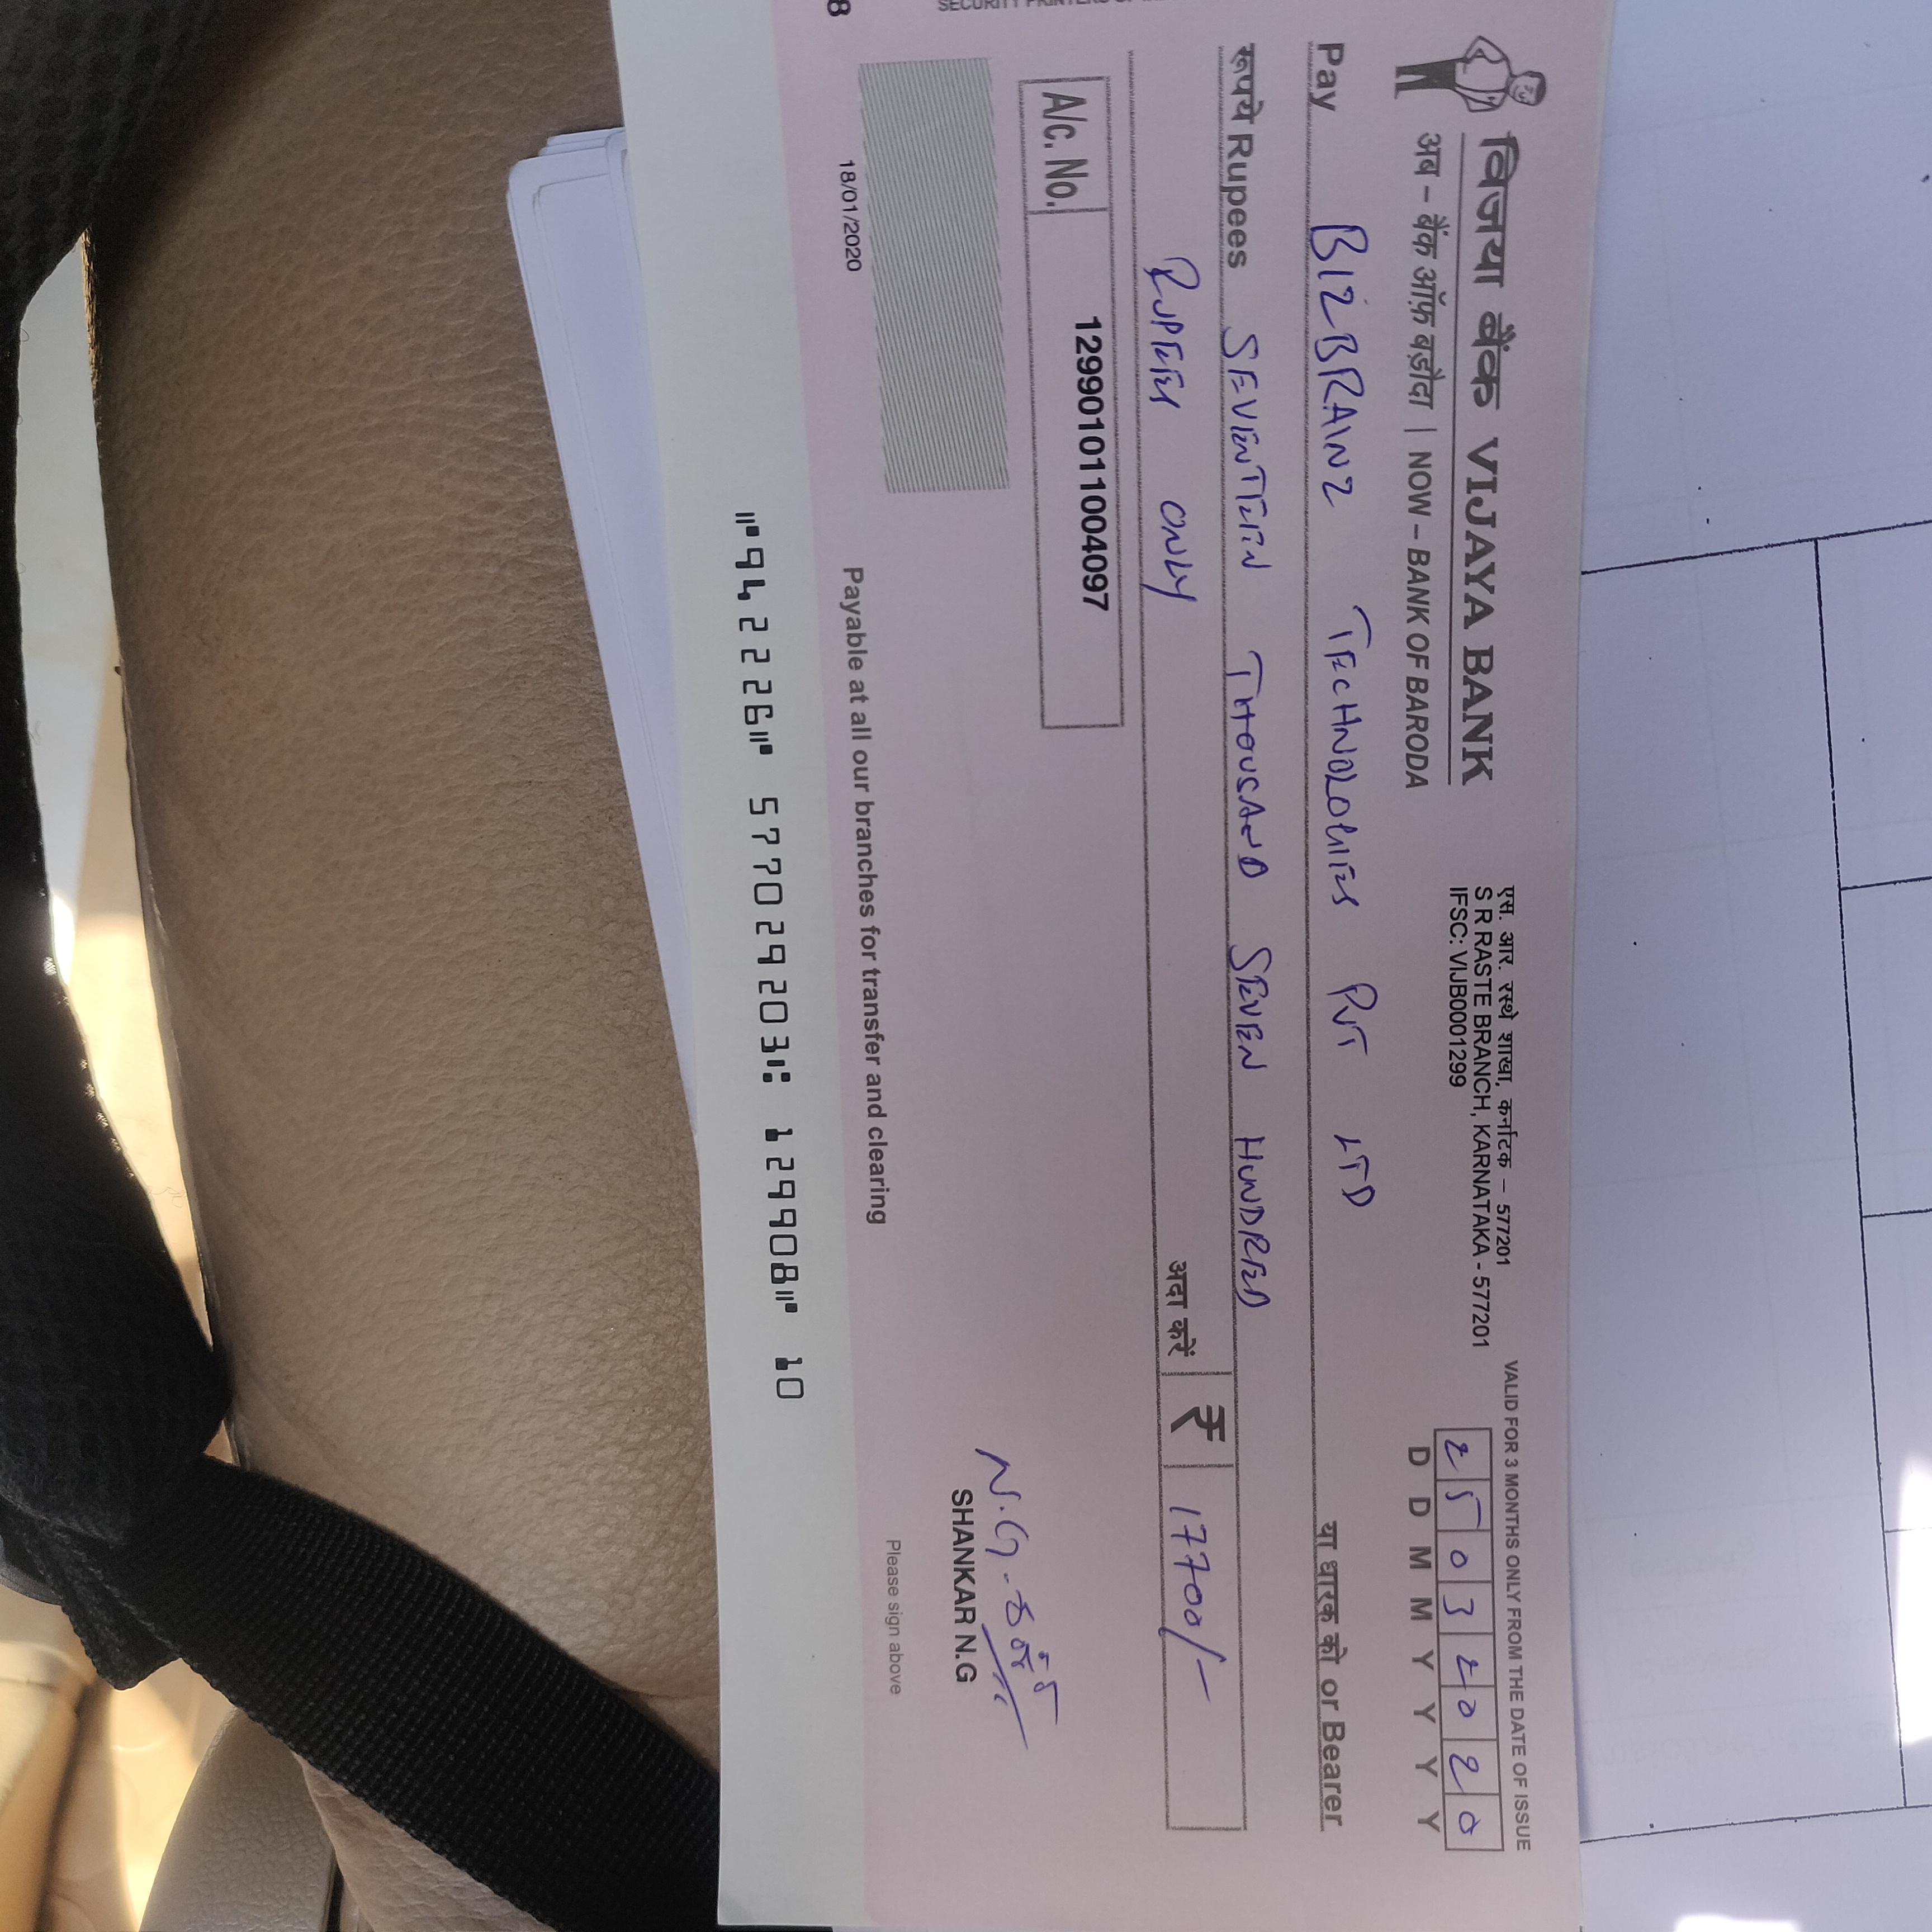 विजया बैंक VIJAYA BANK
अब – बैंक ऑफ़ बड़ौदा | NOW – BANK OF BARODA
एस. आर. रस्थे शाखा, कर्नाटक – 577201
S R RASTE BRANCH, KARNATAKA - 577201
IFSC: VIJB0001299
VALID FOR 3 MONTHS ONLY FROM THE DATE OF ISSUE
2 5 0 3 2 0 2 0
D D M M Y Y Y Y
Pay BIZBRAINZ TECHNOLOGIES PVT LTD या धारक को or Bearer
रूपये Rupees SEVENTEEN THOUSAND SEVEN HUNDRED
RUPEES ONLY अदा करें ₹ 17700/-
A/c. No. 129901011004097
N.G.
SHANKAR N.G
Please sign above
18/01/2020
Payable at all our branches for transfer and clearing
⑈942226⑈ 577029203⑆ 129908⑈ 10